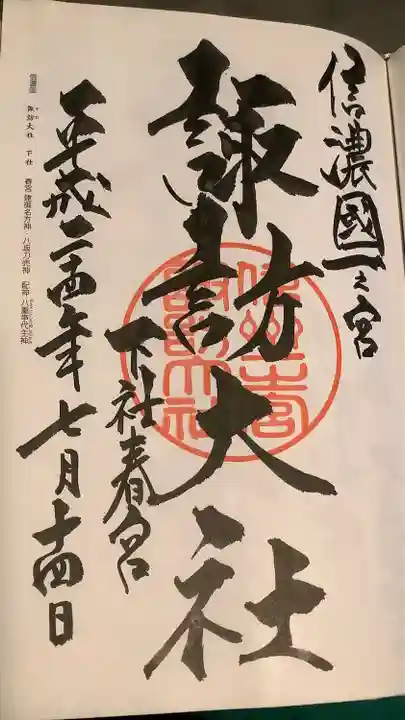 信濃國一之宮
諏訪大社
下社春宮
平成二十四年七月十四日
信濃國 諏訪大社 下社 春宮 建御名方神・八坂刀売神 配神 八重事代主神